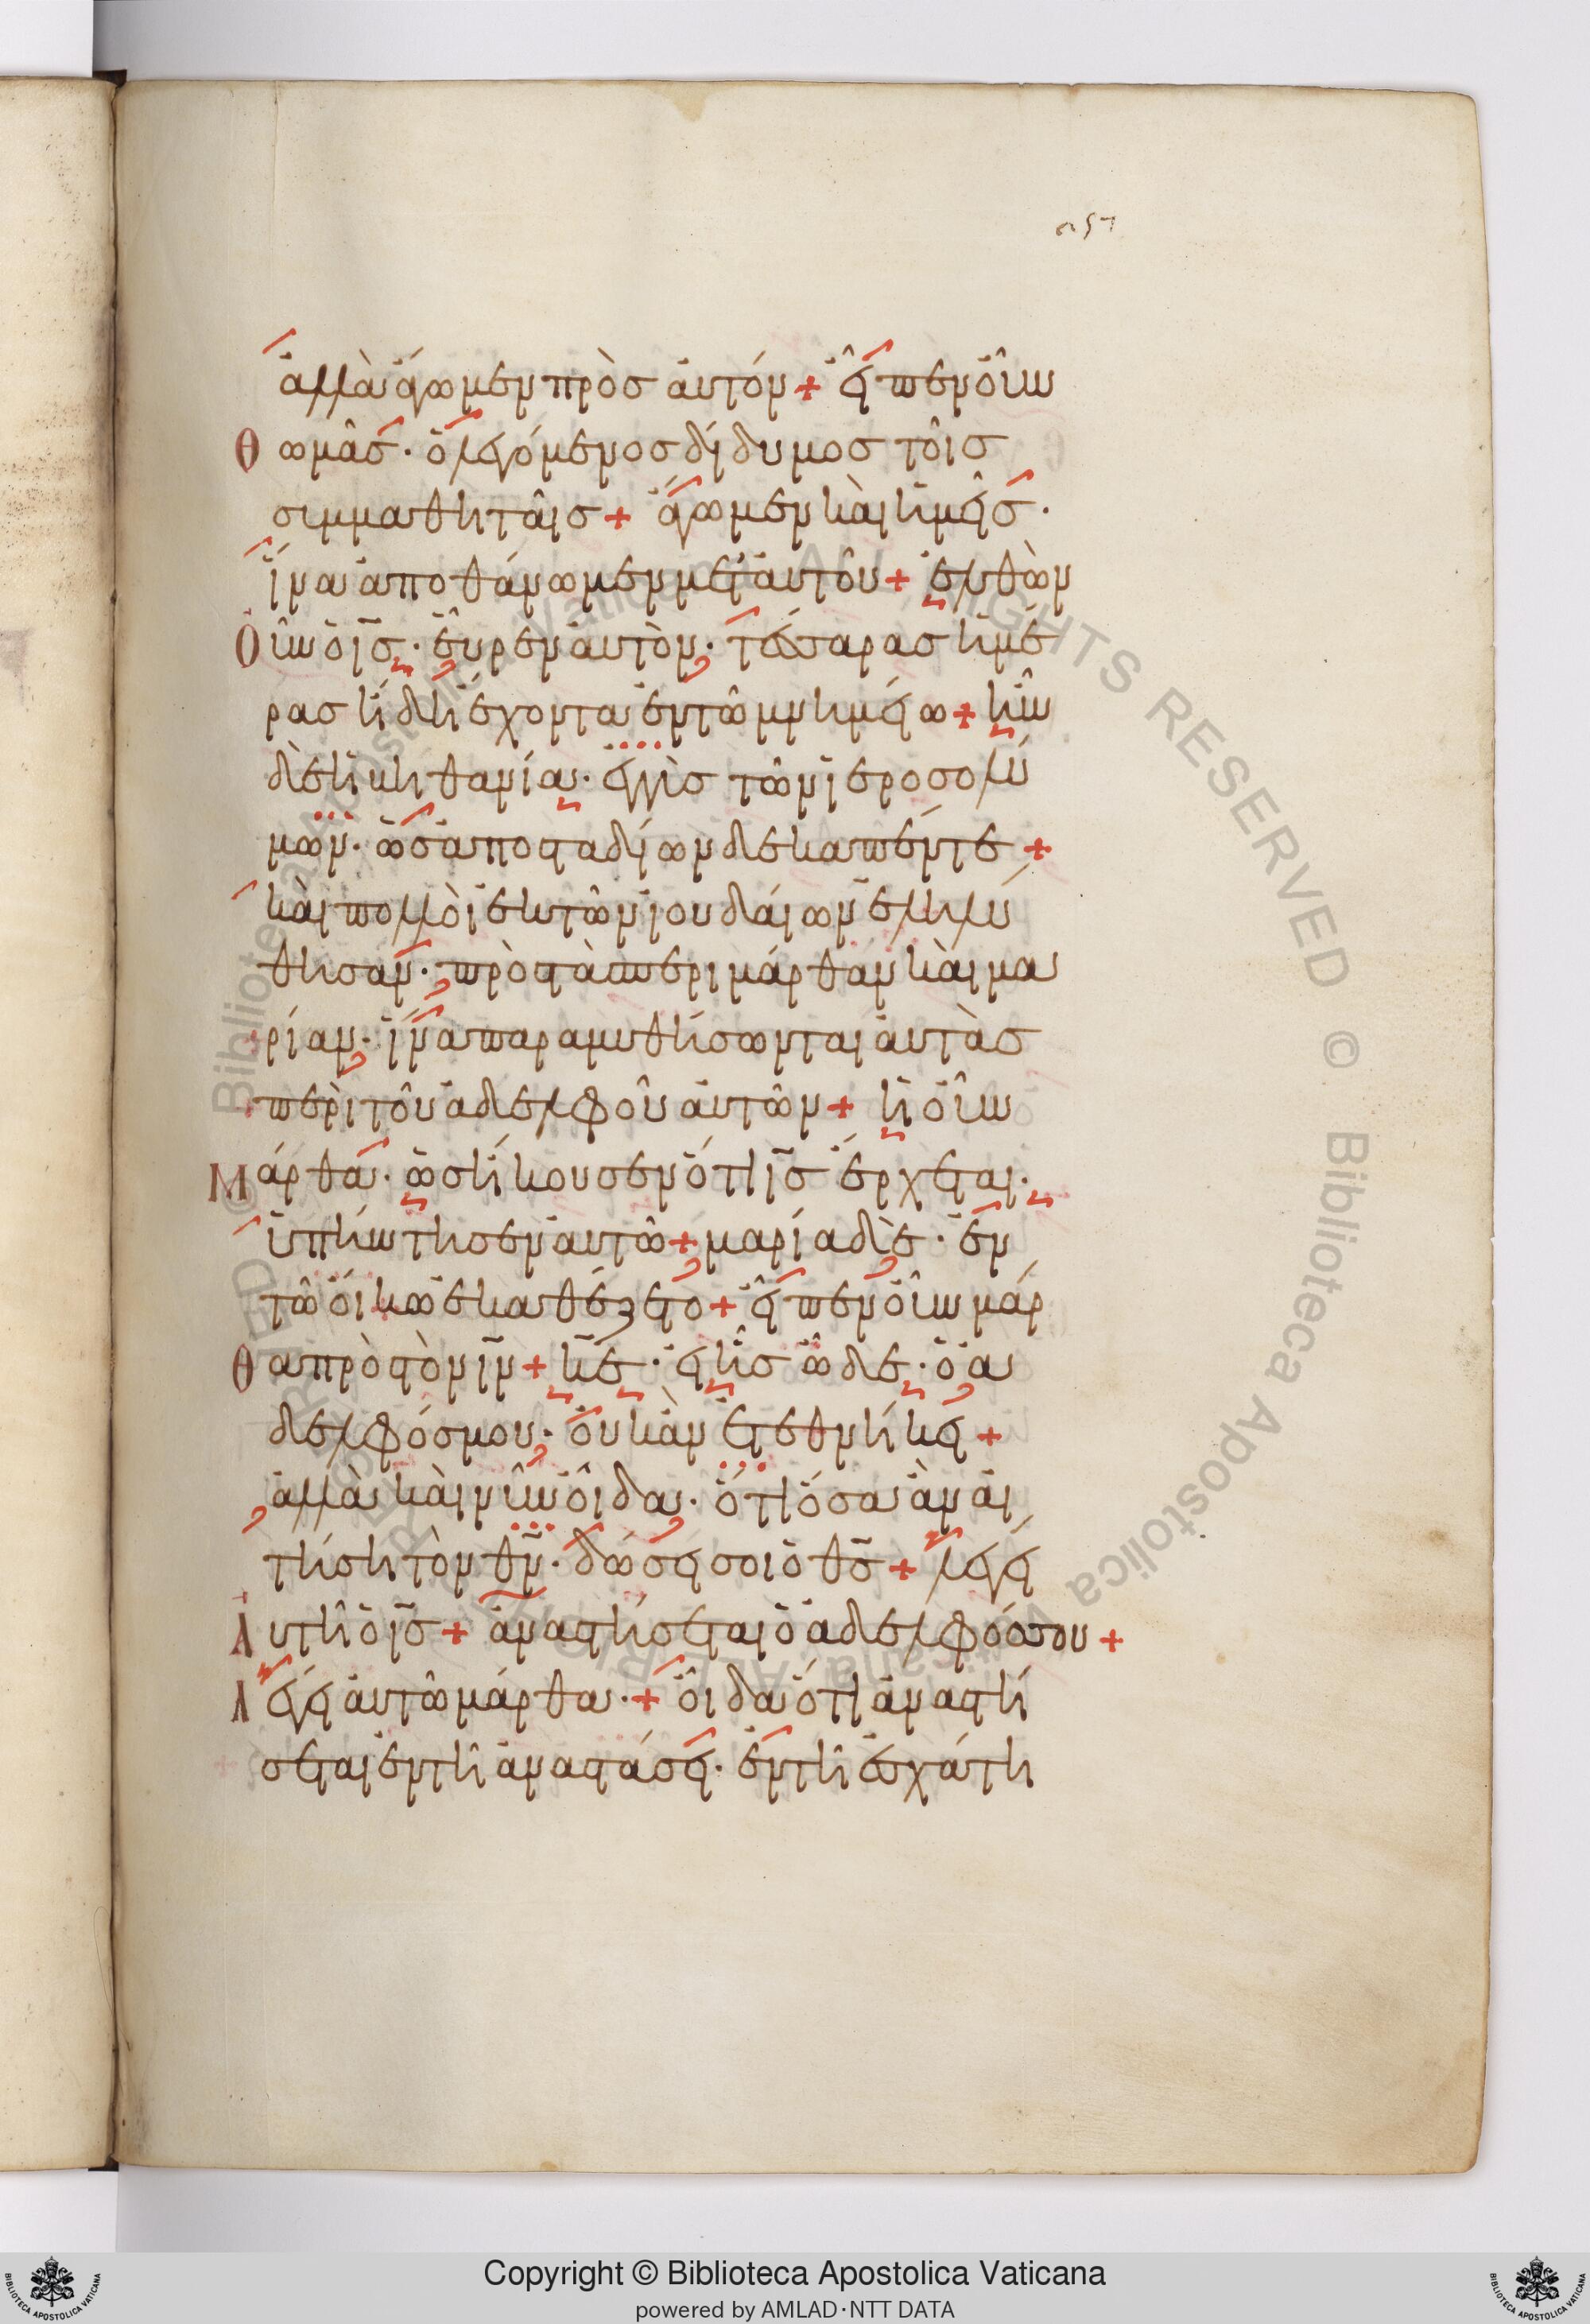 ἀλλὰ ἄγωμεν πρὸς αὐτόν + εἶπεν οὖν
Θωμᾶς · ὁ λεγόμενος δίδυμος τοῖς
συμμαθηταῖς + ἄγωμεν καὶ ἡμεῖς ·
ἵνα ἀποθάνωμεν μετ' αὐτοῦ + ἐλθὼν
Οὖν ὁ ις · εὗρεν αὐτὸν · τέσσαρας ἡμέ
ρας ἤδη ἔχοντα ἐν τῶ μνημείω + ἦν
δὲ ἡ βηθανία · ἐγγὺς τῶν ἱεροσολύ
μων · ὡς ἀπὸ σταδίων δεκαπέντε +
καὶ πολλοὶ ἐκ τῶν ἰουδαίων ἐληλύ
θησαν · πρὸς τὰς περι μάρθαν καὶ μα
ρίαν · ἵνα παραμυθήσωνται αὐτὰς
περὶ τοῦ ἀδελφοῦ αὐτῶν + ἡ οὖν
Μάρθα · ὡς ἤκουσεν ὅτι ις ἔρχεται ·
ὑπήντησεν αὐτῶ + μαρία δὲ · ἐν
τῶ οἴκω ἐκαθέζετο + εἶπεν οὖν μάρ
Θα πρὸς τὸν ιν + κε · εἰ ἦς ὧδε · ὁ ἀ
δελφός μου · οὐκ ἂν ἐτεθνήκει +
ἀλλὰ καὶ νῦν οἶδα · ὅτι ὅσα ἂν αἰ
τήση τὸν θν · δώσει σοι ὁ θς + λέγει
Αὐτῆ ὁ ις + ἀναστήσεται ὁ ἀδελφός σου +
Λέγει αὐτῶ μάρθα · + οἶδα ὅτι ἀναστή
σεται ἐν τῆ ἀναστάσει · ἐν τῆ ἐσχάτη
Copyright © Biblioteca Apostolica Vaticana
powered by AMLAD·NTT DATA